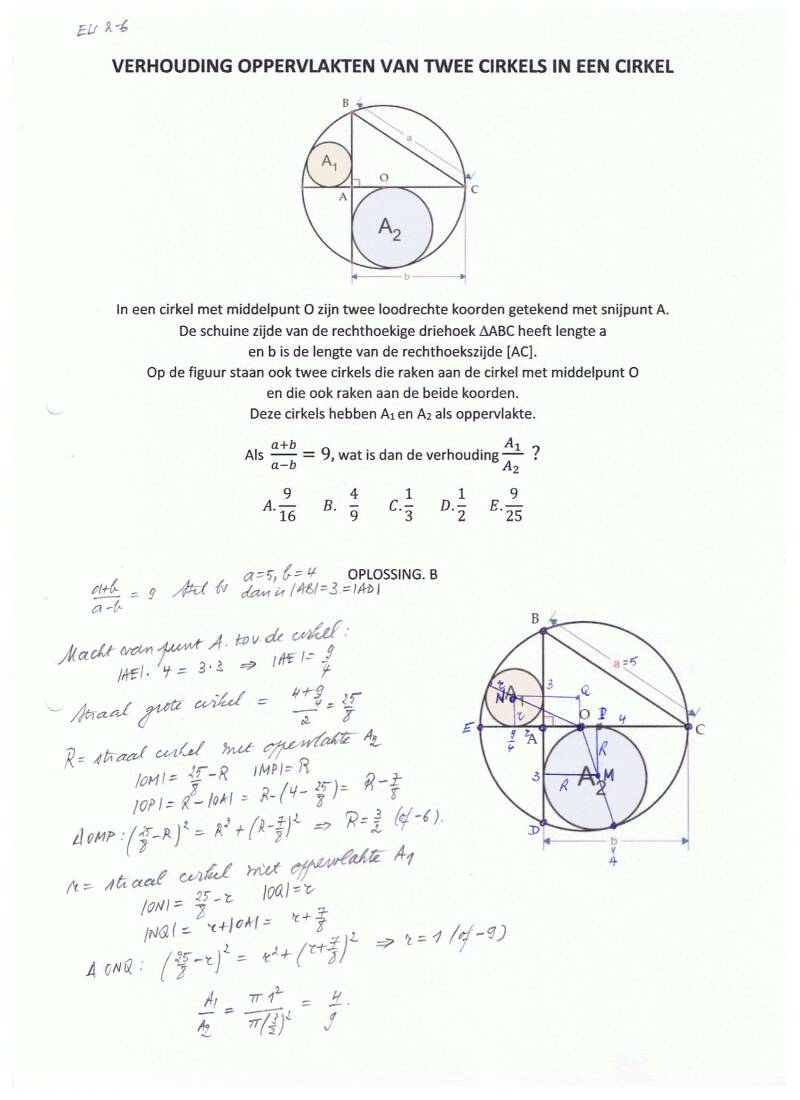 EU 2-6
VERHOUDING OPPERVLAKTEN VAN TWEE CIRKELS IN EEN CIRKEL
B
a
A₁
O
A
C
A₂
b
In een cirkel met middelpunt O zijn twee loodrechte koorden getekend met snijpunt A.
De schuine zijde van de rechthoekige driehoek ∆ABC heeft lengte a
en b is de lengte van de rechthoekszijde [AC].
Op de figuur staan ook twee cirkels die raken aan de cirkel met middelpunt O
en die ook raken aan de beide koorden.
Deze cirkels hebben A₁ en A₂ als oppervlakte.
Als (a+b)/(a−b) = 9, wat is dan de verhouding A₁/A₂ ?
A. 9/16 B. 4/9 C. 1/3 D. 1/2 E. 9/25
OPLOSSING. B
(a+b)/(a-b) = 9 Stel bv a=5, b=4
dan is |AB|=3=|AD|
Macht van punt A. tov de cirkel:
|AE|. 4 = 3.3 ⇒ |AE| = 9/4
Straal grote cirkel = (4+9/4)/2 = 25/8
R = straal cirkel met oppervlakte A₂
|OM| = 25/8 - R |MP| = R
|OP| = R - |OA| = R-(4-25/8) = R-7/8
∆OMP: (25/8-R)² = R²+(R-7/8)² ⇒ R=3/2 (of -6).
r = straal cirkel met oppervlakte A₁
|ON| = 25/8 - r |OQ| = r
|NQ| = r+|OA| = r+7/8
∆ ONQ: (25/8-r)² = r²+(r+7/8)² ⇒ r=1 (of -9)
A₁/A₂ = π1²/π(3/2)² = 4/9.
B
a=5
A₁
N
3
Q
r
E
9/4
A
O
P
4
C
R
3
R
M
A₂
D
b
4